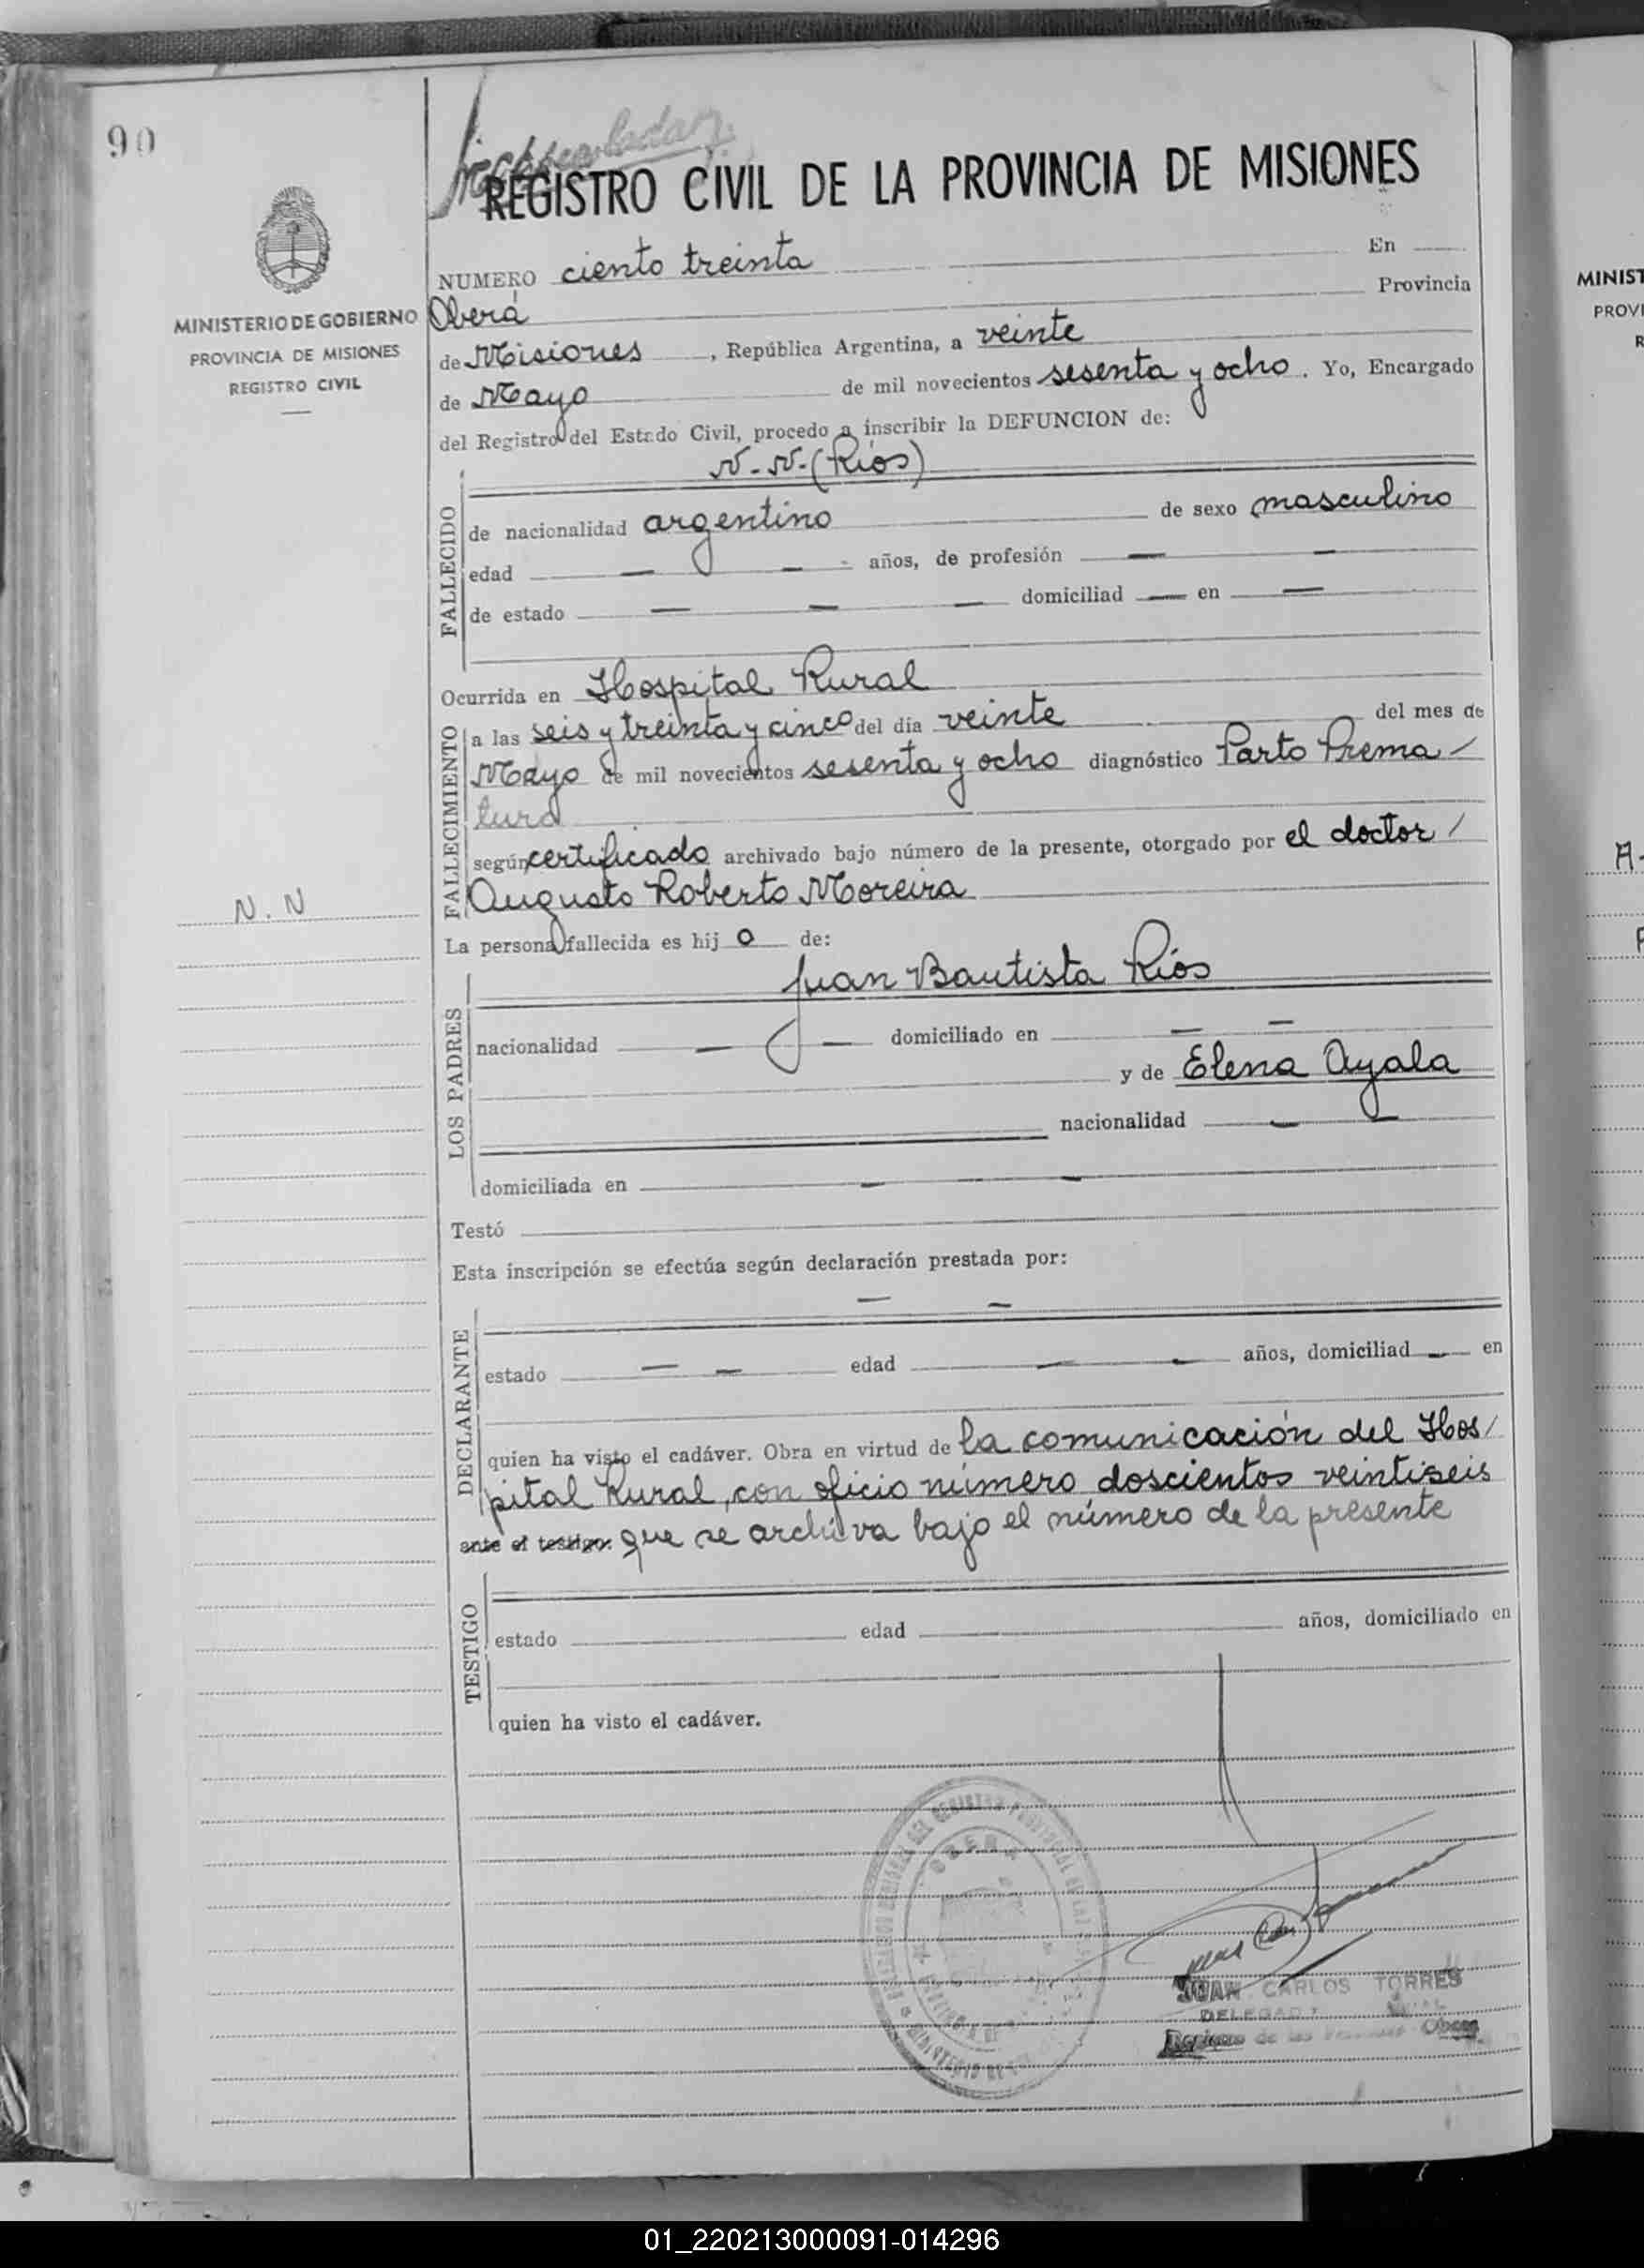 90
REGISTRO CIVIL DE LA PROVINCIA DE MISIONES
MINISTERIO DE GOBIERNO
PROVINCIA DE MISIONES
REGISTRO CIVIL
N.N
NUMERO ciento treinta En
Oberá Provincia
de Misiones, República Argentina, a veinte
de Mayo de mil novecientos sesenta y ocho. Yo, Encargado
del Registro del Estado Civil, procedo a inscribir la DEFUNCION de:
N.-N.-(Ríos)
FALLECIDO
de nacionalidad argentino de sexo masculino
edad — — años, de profesión — —
de estado — — — domiciliad — en —
Ocurrida en Hospital Rural
FALLECIMIENTO
a las seis y treinta y cinco del día veinte del mes de
Mayo de mil novecientos sesenta y ocho diagnóstico Parto Prema/
turo
según certificado archivado bajo número de la presente, otorgado por el doctor/
Augusto Roberto Moreira
La persona fallecida es hijo de:
LOS PADRES
Juan Bautista Ríos
nacionalidad — — domiciliado en — —
y de Elena Ayala
nacionalidad — —
domiciliada en — —
Testó
Esta inscripción se efectúa según declaración prestada por:
— —
DECLARANTE
estado — — edad — — años, domiciliad — en
quien ha visto el cadáver. Obra en virtud de la comunicación del Hos/
pital Rural, con oficio número doscientos veintiseis
ante el testigo: que se archiva bajo el número de la presente
TESTIGO
estado edad años, domiciliado en
quien ha visto el cadáver.
JUAN CARLOS TORRES
DELEGADO
MINIST
PROVI
R
A-
01_220213000091-014296